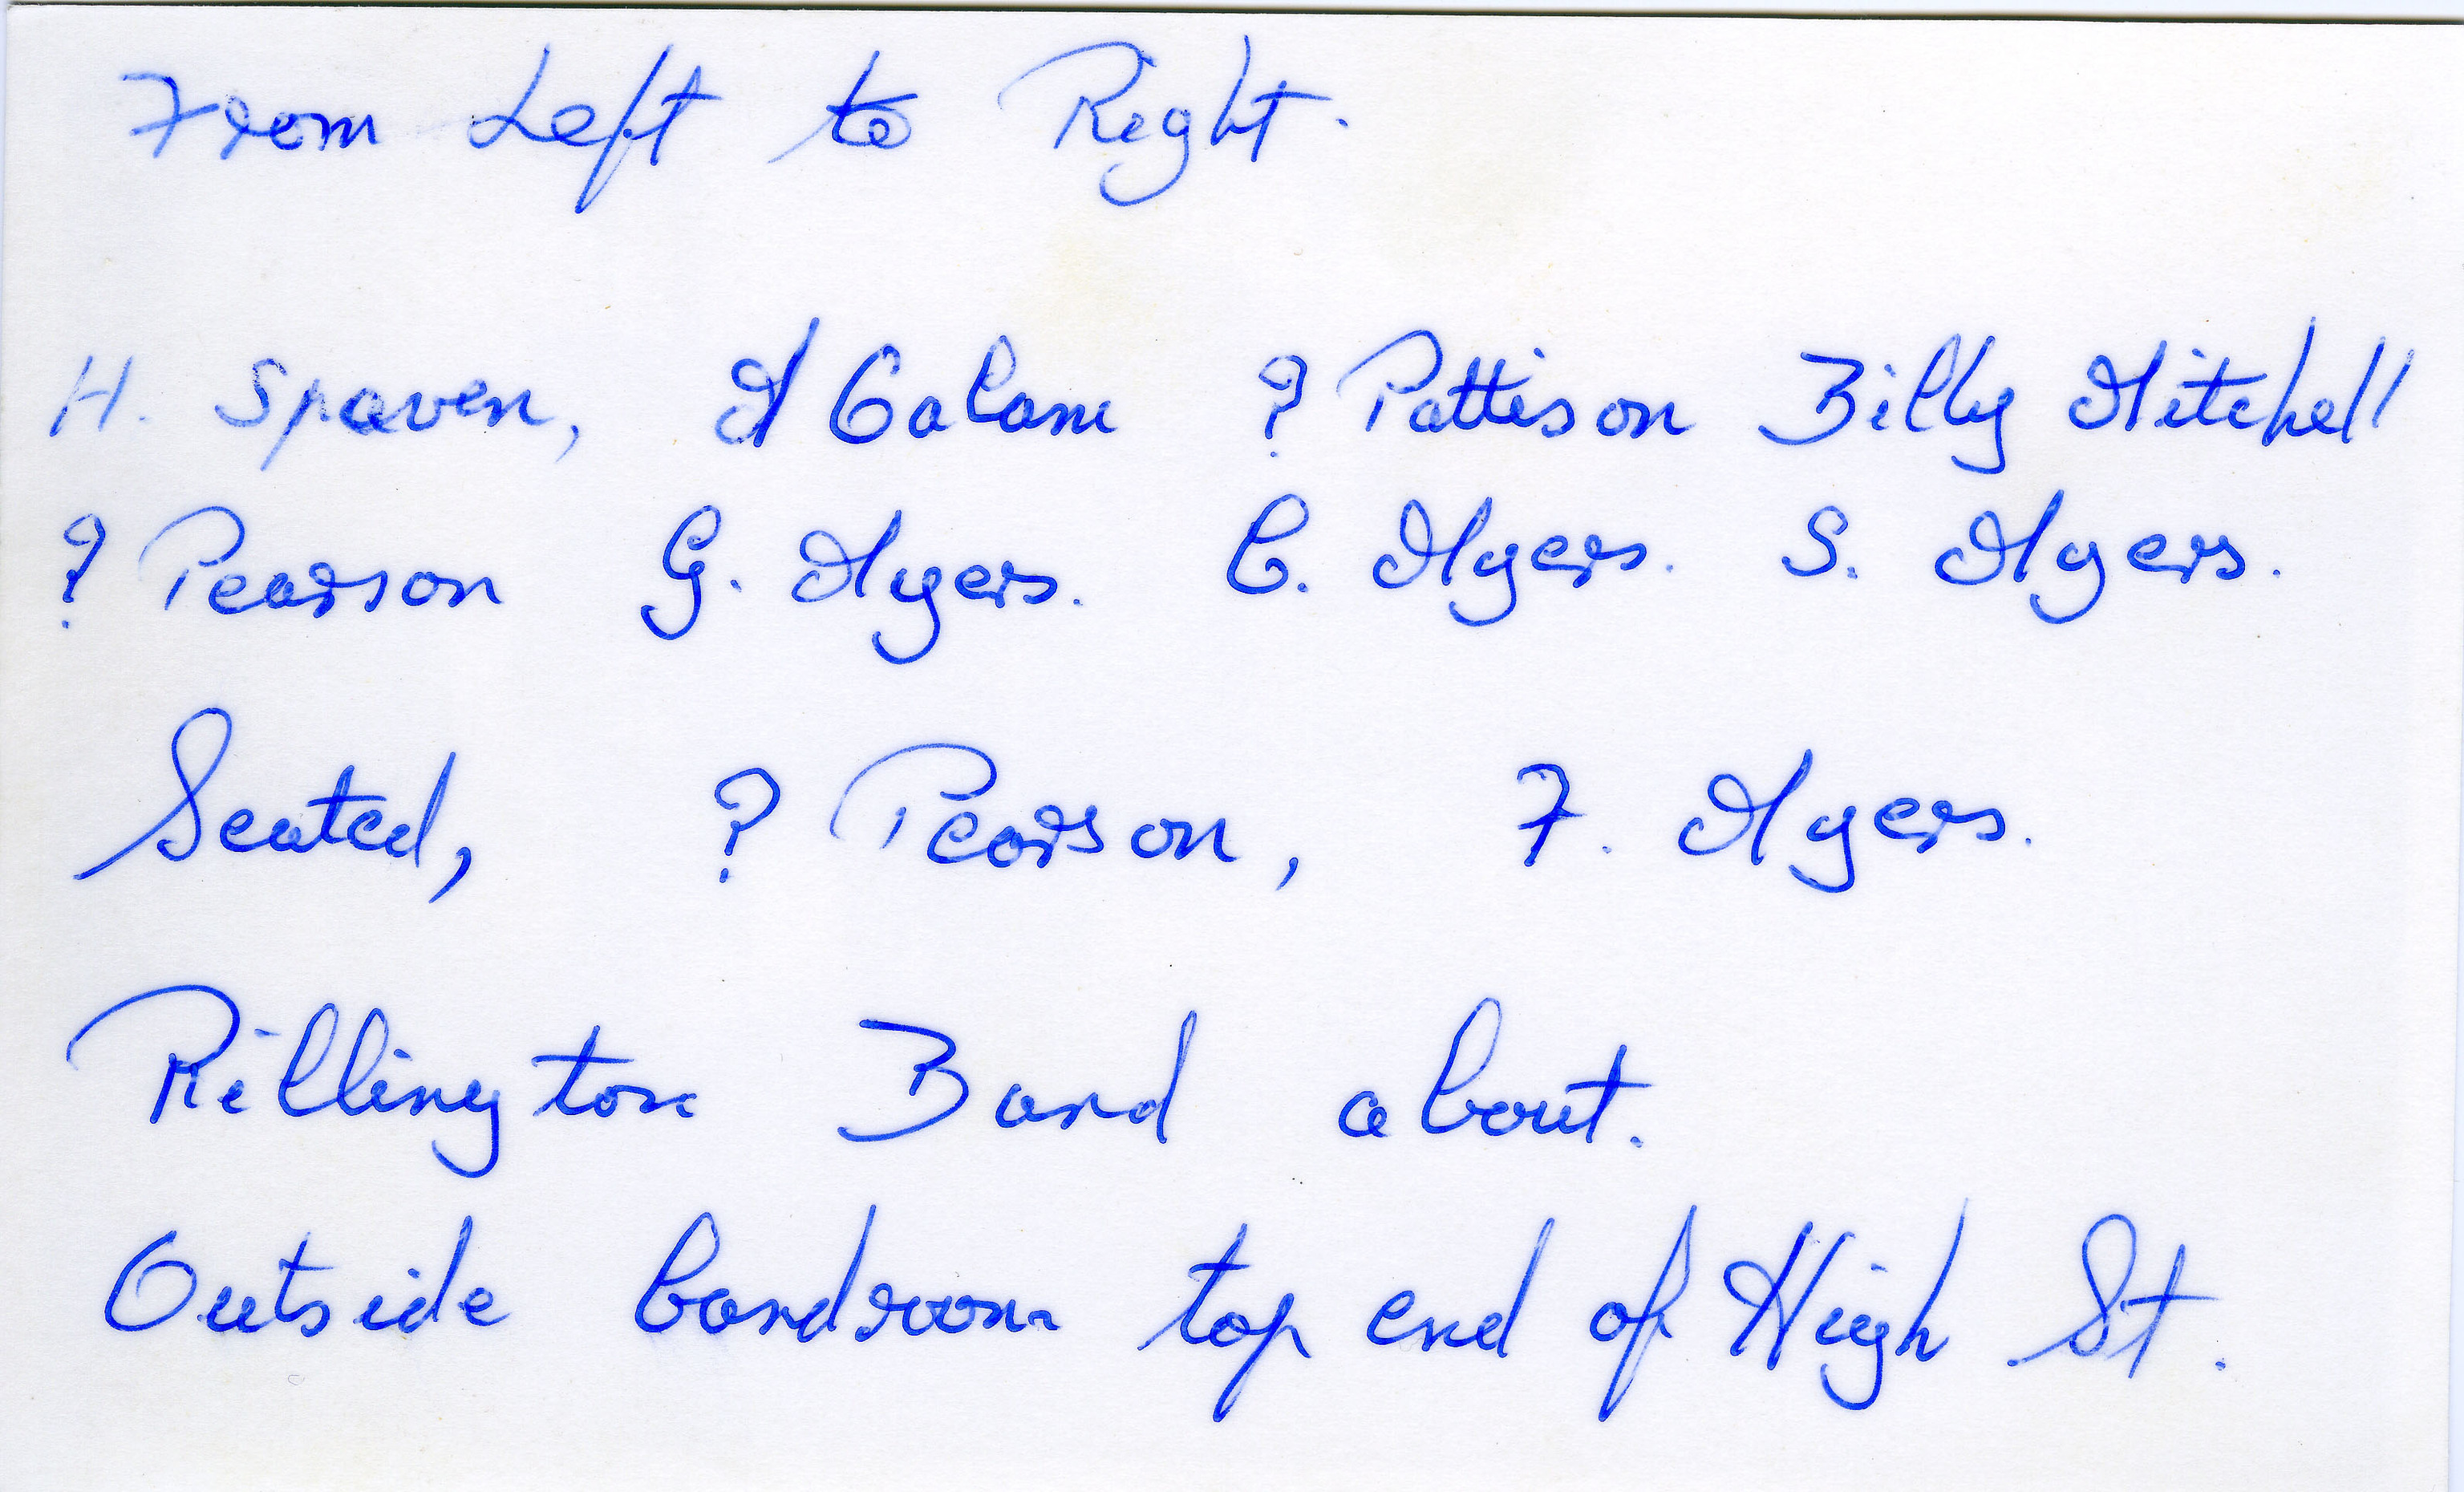 From Left to Right.
H. Spaven, A Calam ? Pattison Billy Mitchell
? Pearson G. Myers. C. Myers. S. Myers.
Seated, ? Pearson, F. Myers.
Rillington Band about.
Outside bandroom top end of High St.